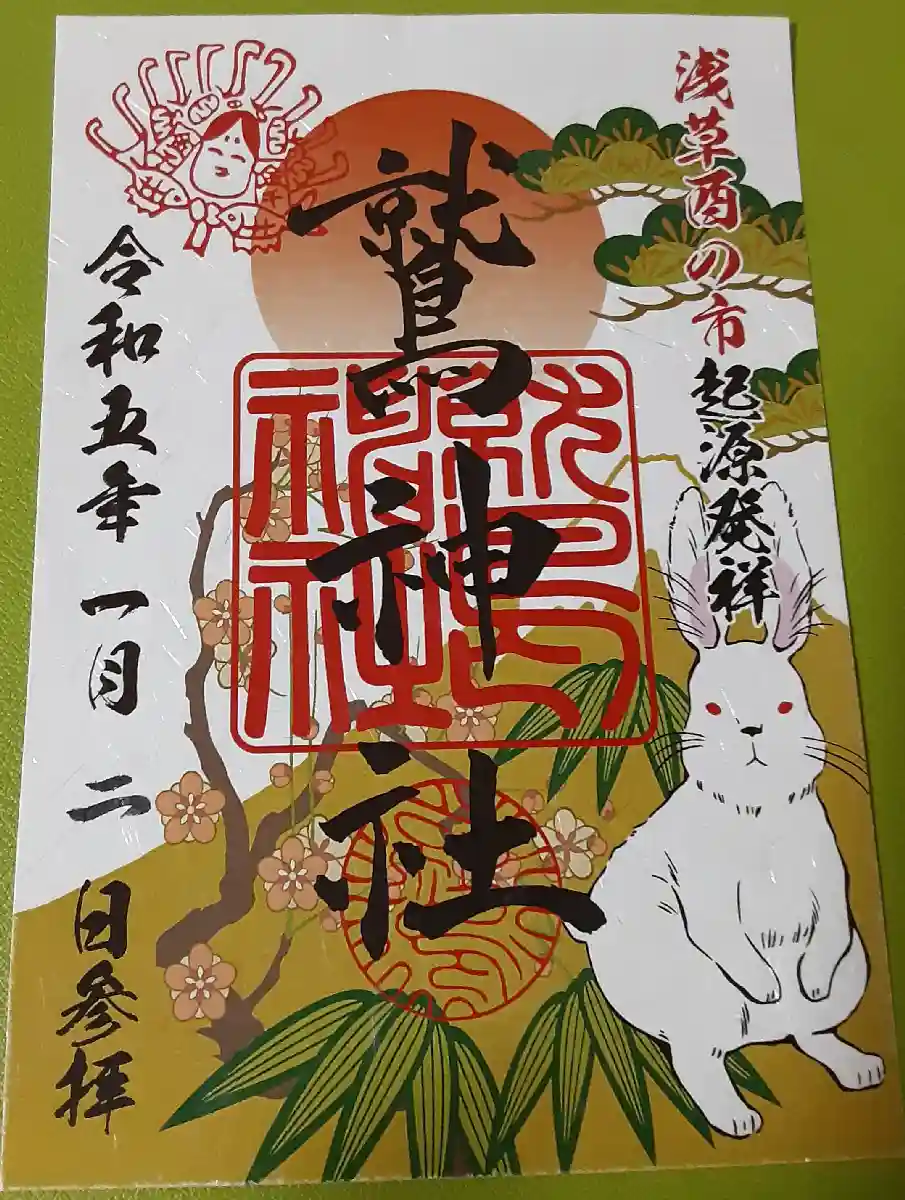 浅草酉の市起源発祥
鷲神社
鷲神社
令和五年一月二日参拝